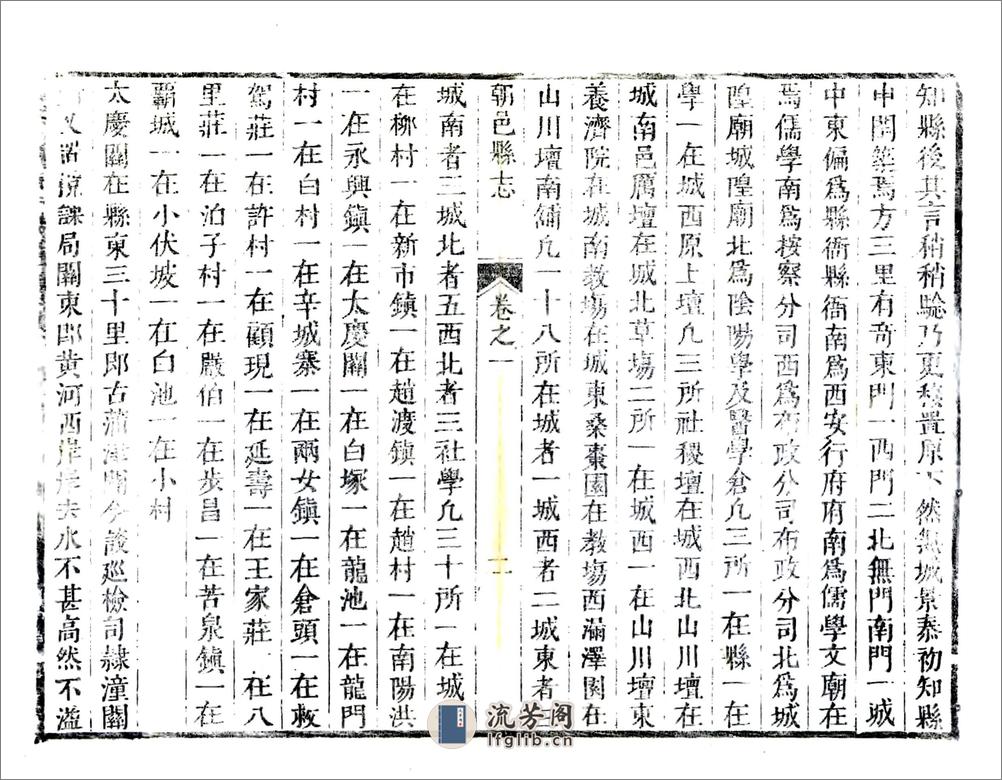 知縣後其言稍稍騐乃更移置原下然無城景泰初知縣
申閏築焉方三里有奇東門一西門二北無門南門一城
中東偏爲縣衙縣衙南爲西安行府府南爲儒學文廟在
焉儒學南爲按察分司西爲布政分司布政分司北爲城
隍廟城隍廟北爲陰陽學及醫學倉凢三所一在縣一在
學一在城西原上壇凢三所社稷壇在城西北山川壇在
城南邑厲壇在城北草塲二所一在城西一在山川壇東
養濟院在城南教塲在城東桑棗園在教塲西漏澤園在
山川壇南舖凢一十八所在城者一城西者二城東者
朝邑縣志
卷之一
二
城南者三城北者五西北者三社學凢三十所一在城
在柳村一在新市鎮一在趙渡鎮一在趙村一在南陽洪
一在永興鎮一在太慶關一在白塚一在龍池一在龍門
村一在白村一在辛城寨一在兩女鎮一在倉頭一在敕
駕莊一在許村一在顧現一在延壽一在王家莊一在八
里莊一在泊子村一在嚴伯一在步昌一在苦泉鎮一在
霸城一在小伏坡一在白池一在小村
大慶關在縣東三十里即古蒲津關今設巡檢司隷潼關
又設稅課局關東即黃河西岸岸去水不甚高然不溢
流芳阁
lfglib.cn